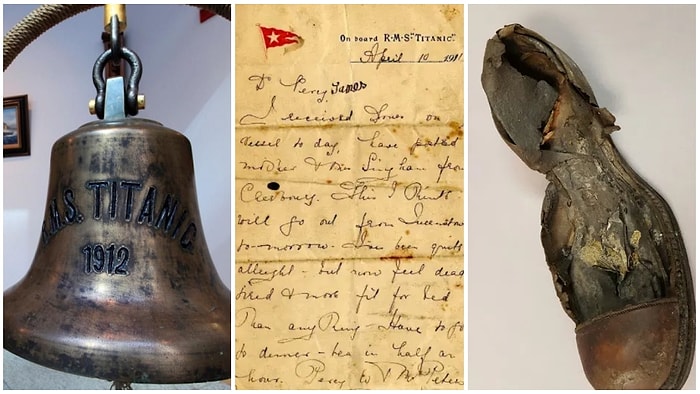 R.M.S. TITANIC
1912
On board R·M·S·"TITANIC".
April 10 191
Dr Percy James
I received yours on
vessel to day, have
mother & Miss from
This I
will go out from Queenstown
to-morrow. I've been quite
allright - but now feel dead
tired & more fit for bed
than any - Have to go
to dinner - tea in half an
hour. Percy to